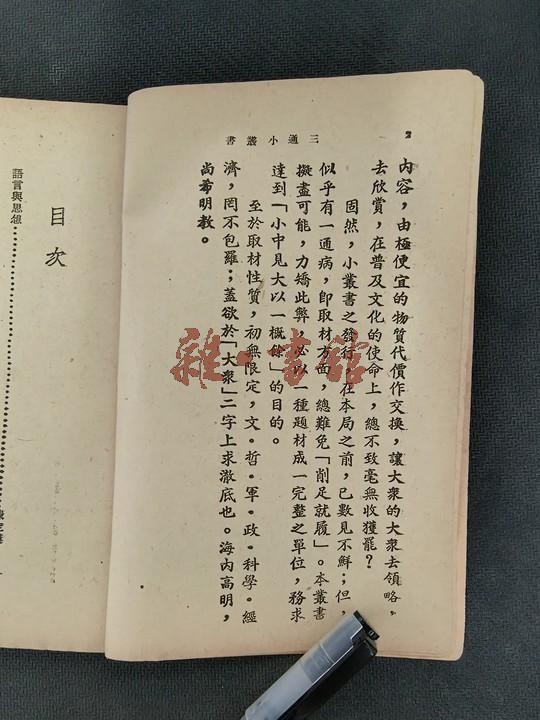 2
三通小叢書
內容，由極便宜的物質代價作交換，讓大衆的大衆去領略，
去欣賞，在普及文化的使命上，總不致毫無收獲罷？
固然，小叢書之發行，在本局之前，已數見不鮮；但，
似乎有一通病，卽取材方面，總難免「削足就履」。本叢書
擬盡可能，力矯此弊，必以一種題材成一完整之單位，務求
達到「小中見大以一概餘」的目的。
至於取材性質，初無限定，文・哲・軍・政・科學・經
濟，罔不包羅；蓋欲於「大衆」二字上求澈底也。海內高明，
尚希明敎。
目次
語言與思想
雜·書館